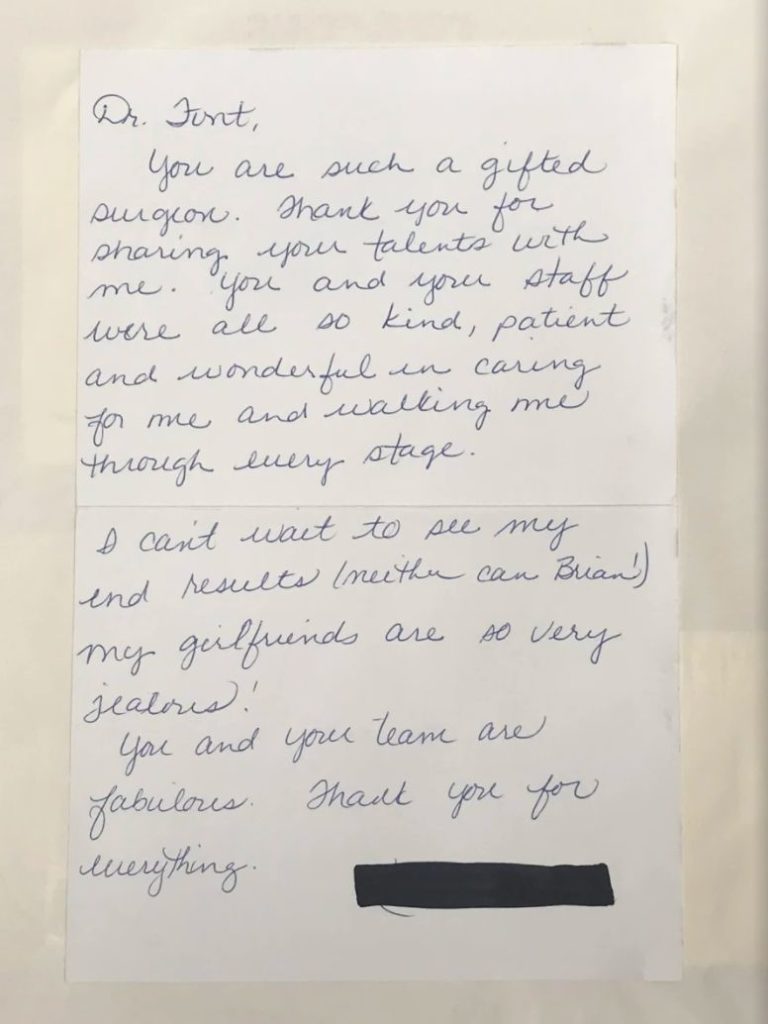 Dr. Funt,
You are such a gifted
surgeon. Thank you for
sharing your talents with
me. You and your staff
were all so kind, patient
and wonderful in caring
for me and walking me
through every stage.
I can't wait to see my
end results (neither can Brian!)
My girlfriends are so very
jealous!
You and your team are
fabulous. Thank you for
everything.